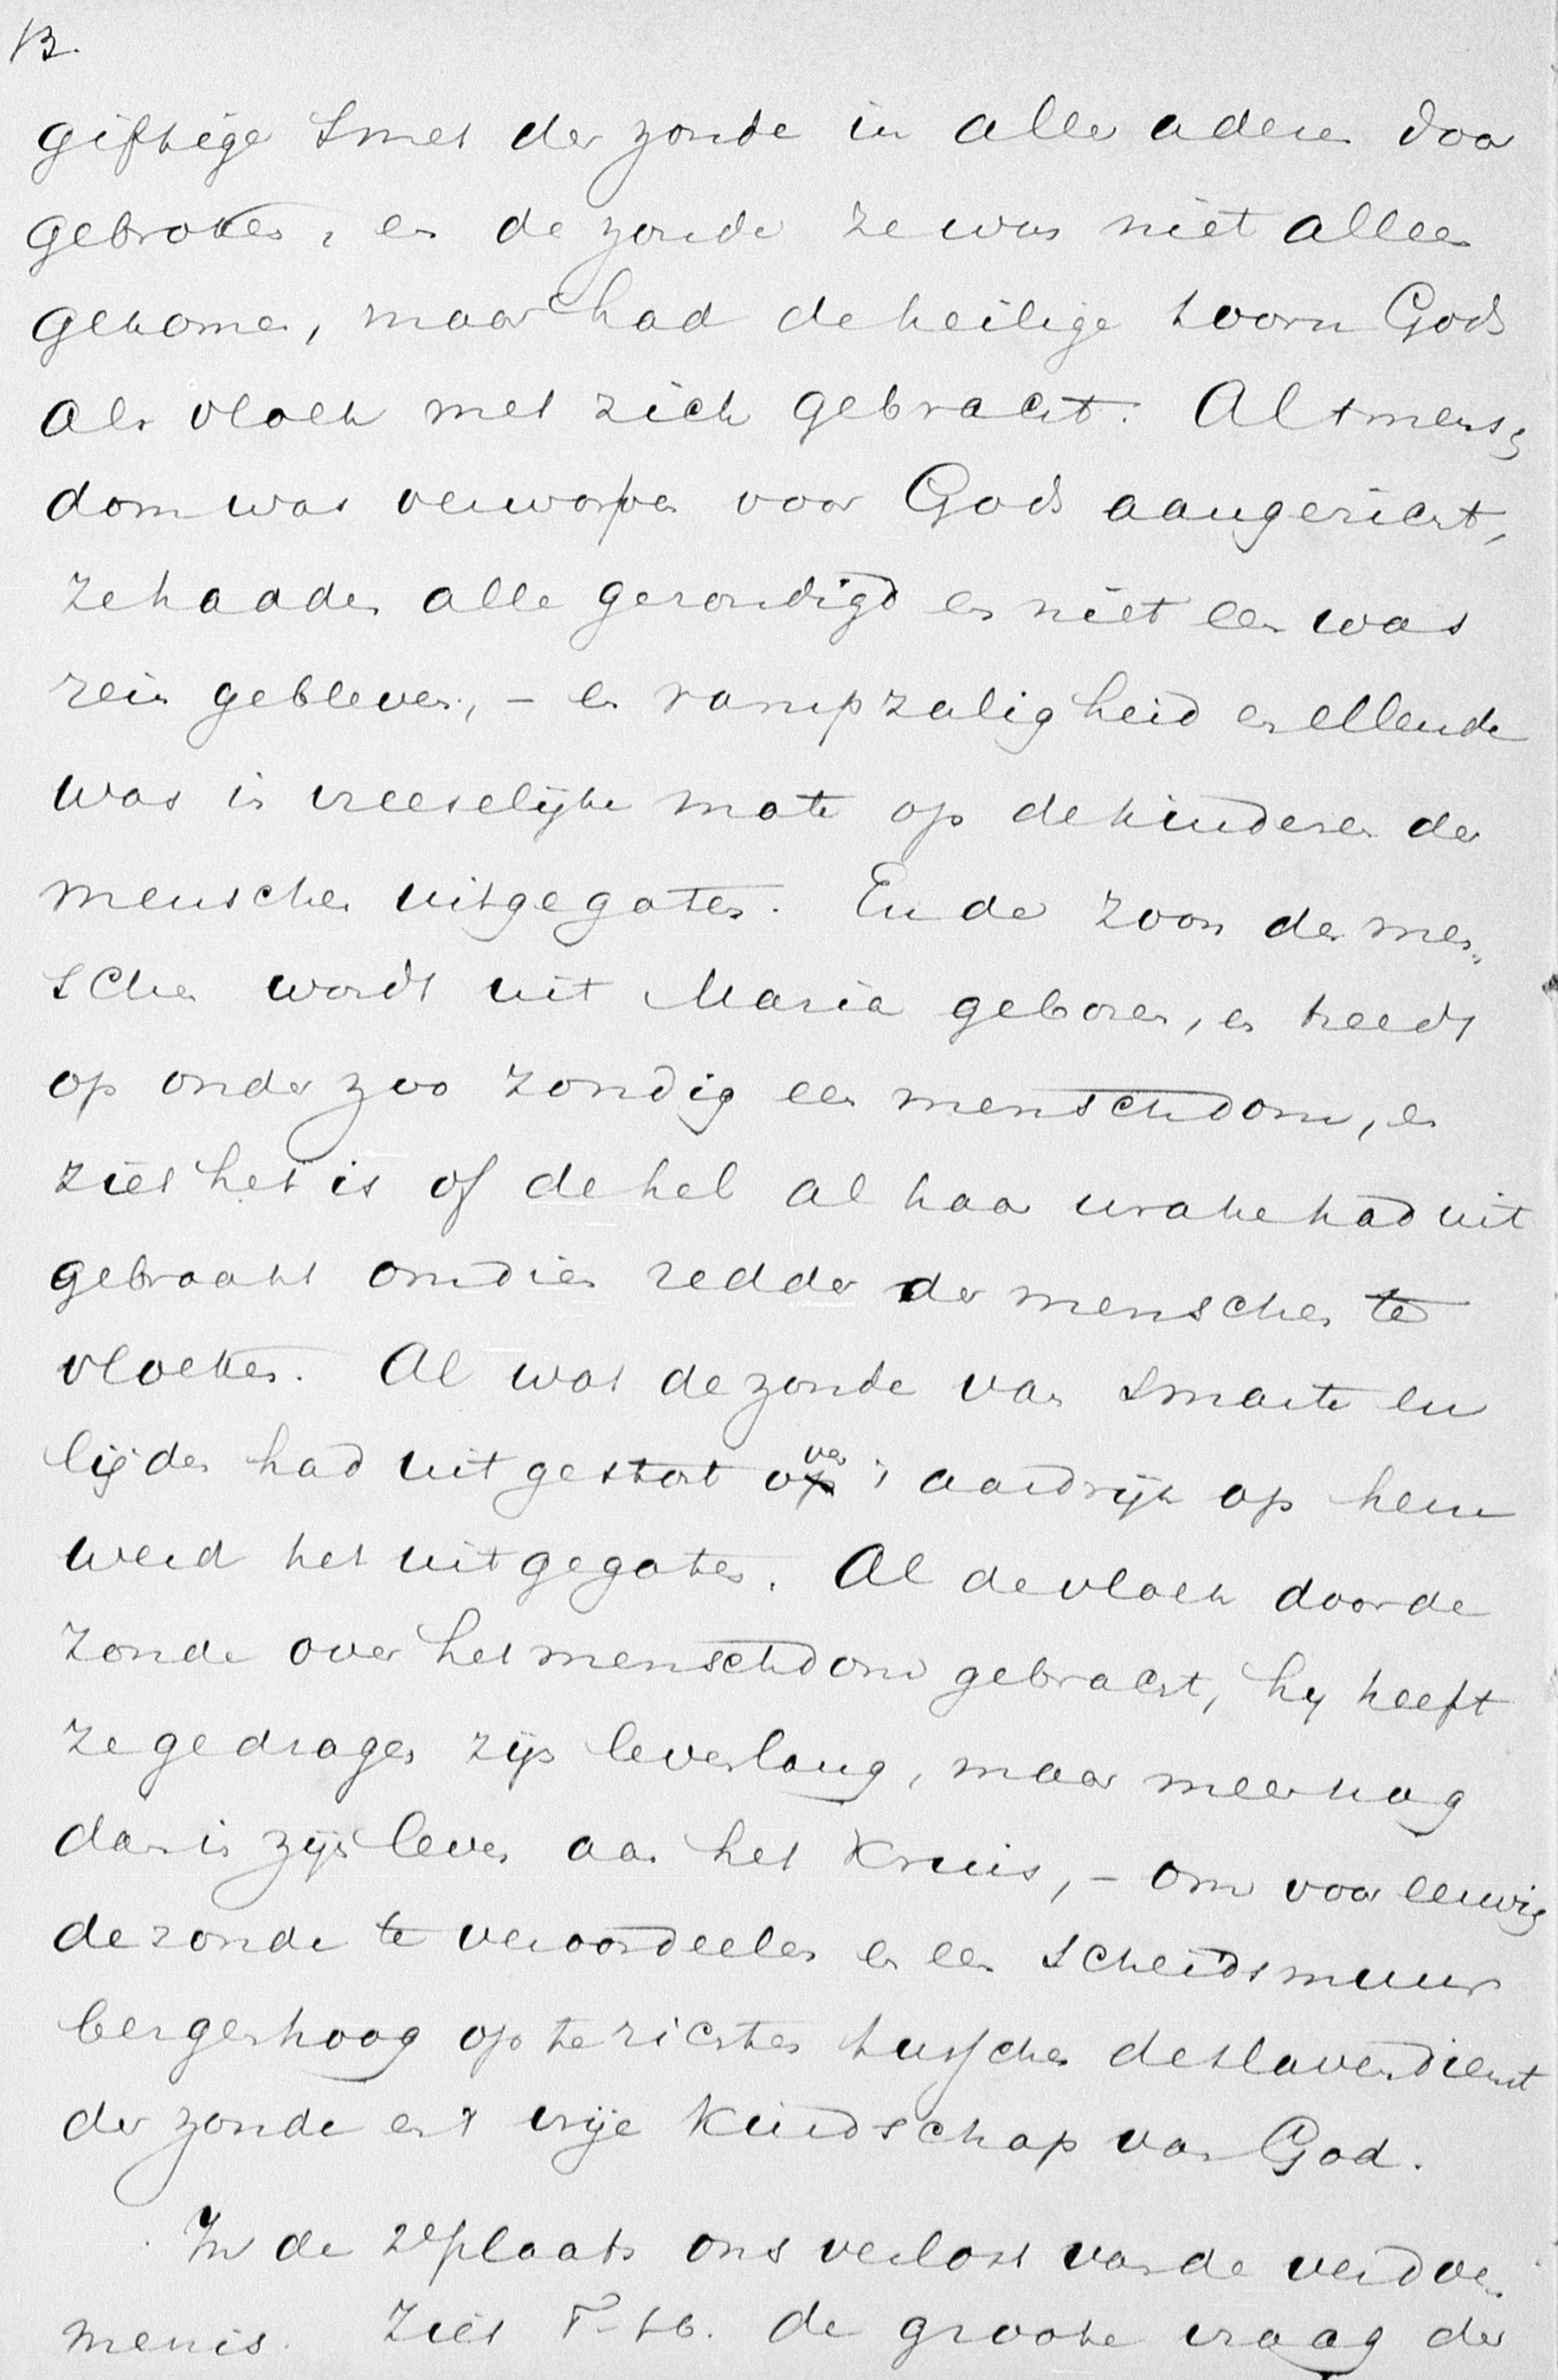 13.
giftige smet der zonde in alle aderen door
gebroken, en de zonde ze was niet alleen
gekomen, maar had de heilige toorn Gods
als vloek met zich gebracht. Al 't mensch
dom was verworpen voor Gods aangezicht,
ze hadden alle gezondigd en niet een was
rein gebleven, – en rampzaligheid en ellende
was in vreeselijke mate op de kinderen der
menschen uitgegoten. En de zoon des men„
schen wordt uit Maria geboren, en treedt
op onder zoo zondig een menschdom, en
ziet het is of de hel al haar wrake had uit
gebraakt om dien redder der menschen te
vloeken. Al wat de zonde van smarte en
lijden had uitgestort over 't aardrijk op hem
werd het uitgegoten. Al de vloek door de
zonde over het menschdom gebracht, hij heeft
ze gedragen zijn levenlang, maar meer nog
dan in zijn leven aan het kruis, – om voor eeuwig
de zonde te veroordeelen en een scheidsmuur
bergenhoog op te richten tusschen de slavendienst
der zonde en 't vrije kindschap van God.
In de 2e plaats ons verlost van de verdoe„
menis. Ziet de groote vraag der